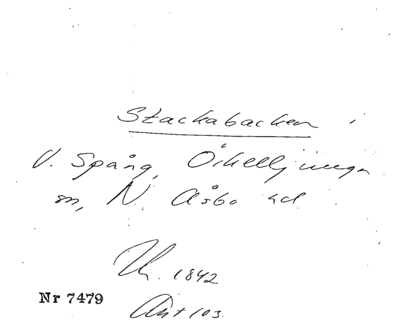 Stackabacken i
V. Spång, Örkelljunga
sn, N. Åsbo hd
Uk. 1842
Nr 7479
Ant 103